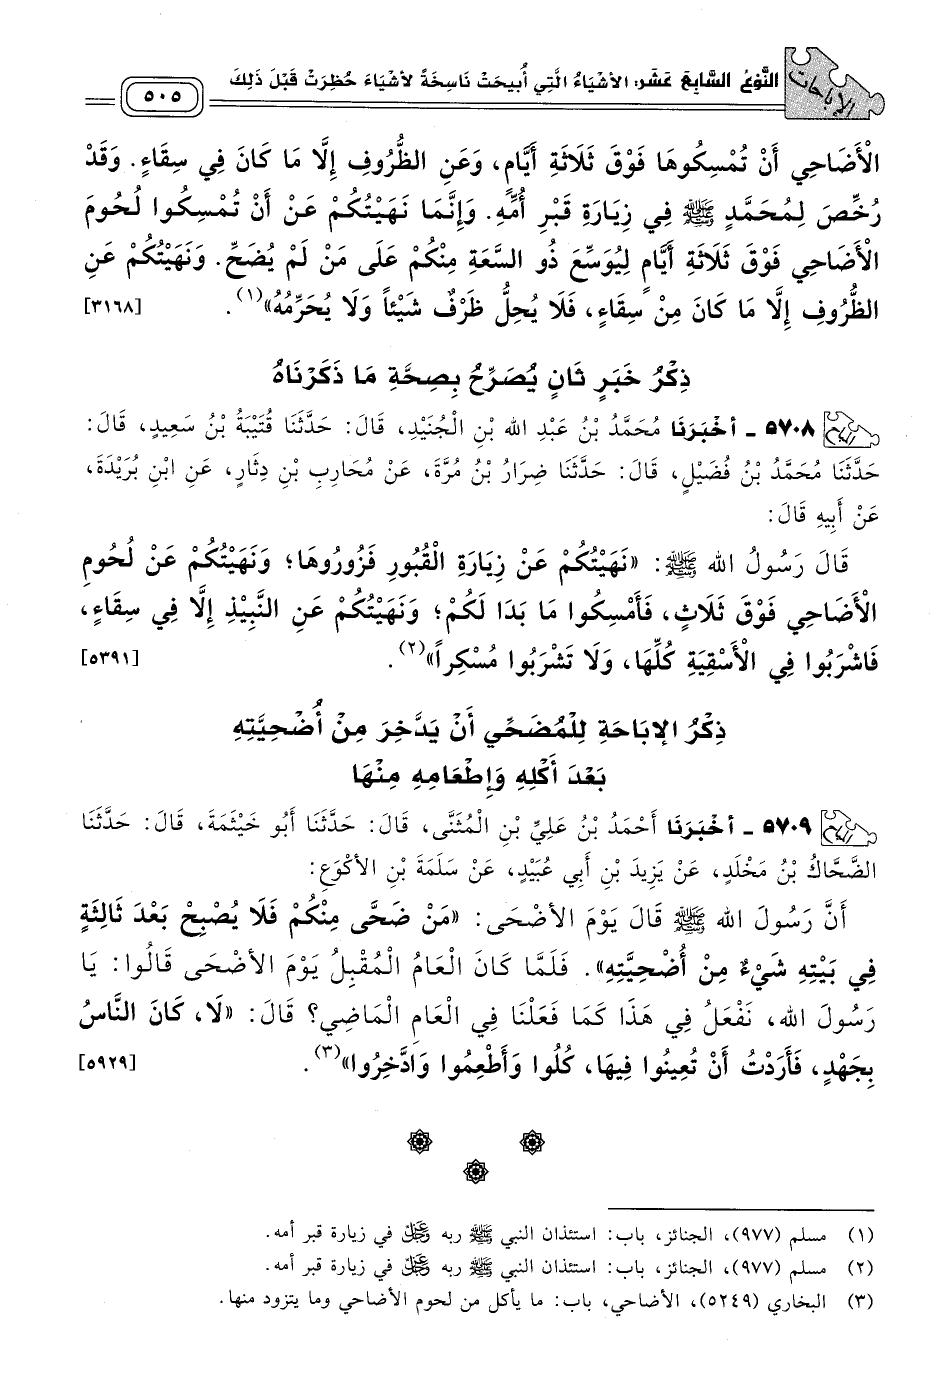 الإباحات
النَّوْعُ السَّابِعَ عَشَرَ: الأَشْيَاءُ الَّتِي أُبِيحَتْ نَاسِخَةً لأَشْيَاءَ حُظِرَتْ قَبْلَ ذَلِكَ
٥٠٥
الْأَضَاحِي أَنْ تُمْسِكُوهَا فَوْقَ ثَلَاثَةِ أَيَّامٍ، وَعَنِ الظُّرُوفِ إِلَّا مَا كَانَ فِي سِقَاءٍ. وَقَدْ
رُخِّصَ لِمُحَمَّدٍ ﷺ فِي زِيَارَةِ قَبْرِ أُمِّهِ. وَإِنَّمَا نَهَيْتُكُمْ عَنْ أَنْ تُمْسِكُوا لُحُومَ
الْأَضَاحِي فَوْقَ ثَلَاثَةِ أَيَّامٍ لِيُوَسِّعَ ذُو السَّعَةِ مِنْكُمْ عَلَى مَنْ لَمْ يُضَحِّ. وَنَهَيْتُكُمْ عَنِ
الظُّرُوفِ إِلَّا مَا كَانَ مِنْ سِقَاءٍ، فَلَا يُحِلُّ ظَرْفٌ شَيْئاً وَلَا يُحَرِّمُهُ»(١). [٣١٦٨]
ذِكْرُ خَبَرٍ ثَانٍ يُصَرِّحُ بِصِحَّةِ مَا ذَكَرْنَاهُ
٥٧٠٨ - أَخْبَرَنَا مُحَمَّدُ بْنُ عَبْدِ الله بْنِ الْجُنَيْدِ، قَالَ: حَدَّثَنَا قُتَيْبَةُ بْنُ سَعِيدٍ، قَالَ:
حَدَّثَنَا مُحَمَّدُ بْنُ فُضَيْلٍ، قَالَ: حَدَّثَنَا ضِرَارُ بْنُ مُرَّةَ، عَنْ مُحَارِبِ بْنِ دِثَارٍ، عَنِ ابْنِ بُرَيْدَةَ،
عَنْ أَبِيهِ قَالَ:
قَالَ رَسُولُ الله ﷺ: «نَهَيْتُكُمْ عَنْ زِيَارَةِ الْقُبُورِ فَزُورُوهَا؛ وَنَهَيْتُكُمْ عَنْ لُحُومِ
الْأَضَاحِي فَوْقَ ثَلَاثٍ، فَأَمْسِكُوا مَا بَدَا لَكُمْ؛ وَنَهَيْتُكُمْ عَنِ النَّبِيْذِ إِلَّا فِي سِقَاءٍ،
فَاشْرَبُوا فِي الْأَسْقِيَةِ كُلِّهَا، وَلَا تَشْرَبُوا مُسْكِراً»(٢). [٥٣٩١]
ذِكْرُ الإِبَاحَةِ لِلْمُضَحِّي أَنْ يَدَّخِرَ مِنْ أُضْحِيَّتِهِ
بَعْدَ أَكْلِهِ وَإِطْعَامِهِ مِنْهَا
٥٧٠٩ - أَخْبَرَنَا أَحْمَدُ بْنُ عَلِيِّ بْنِ الْمُثَنَّى، قَالَ: حَدَّثَنَا أَبُو خَيْثَمَةَ، قَالَ: حَدَّثَنَا
الضَّحَّاكُ بْنُ مَخْلَدٍ، عَنْ يَزِيدَ بْنِ أَبِي عُبَيْدٍ، عَنْ سَلَمَةَ بْنِ الأَكْوَعِ:
أَنَّ رَسُولَ الله ﷺ قَالَ يَوْمَ الأَضْحَى: «مَنْ ضَحَّى مِنْكُمْ فَلَا يُصْبِحْ بَعْدَ ثَالِثَةٍ
فِي بَيْتِهِ شَيْءٌ مِنْ أُضْحِيَّتِهِ». فَلَمَّا كَانَ الْعَامُ الْمُقْبِلُ يَوْمَ الأَضْحَى قَالُوا: يَا
رَسُولَ الله، نَفْعَلُ فِي هَذَا كَمَا فَعَلْنَا فِي الْعَامِ الْمَاضِي؟ قَالَ: «لَا، كَانَ النَّاسُ
بِجَهْدٍ، فَأَرَدْتُ أَنْ تُعِينُوا فِيهَا، كُلُوا وَأَطْعِمُوا وَادَّخِرُوا»(٣). [٥٩٢٩]
(١) مسلم (٩٧٧)، الجنائز، باب: استئذان النبي ﷺ ربه ﷿ في زيارة قبر أمه.
(٢) مسلم (٩٧٧)، الجنائز، باب: استئذان النبي ﷺ ربه ﷿ في زيارة قبر أمه.
(٣) البخاري (٥٢٤٩)، الأضاحي، باب: ما يأكل من لحوم الأضاحي وما يتزود منها.